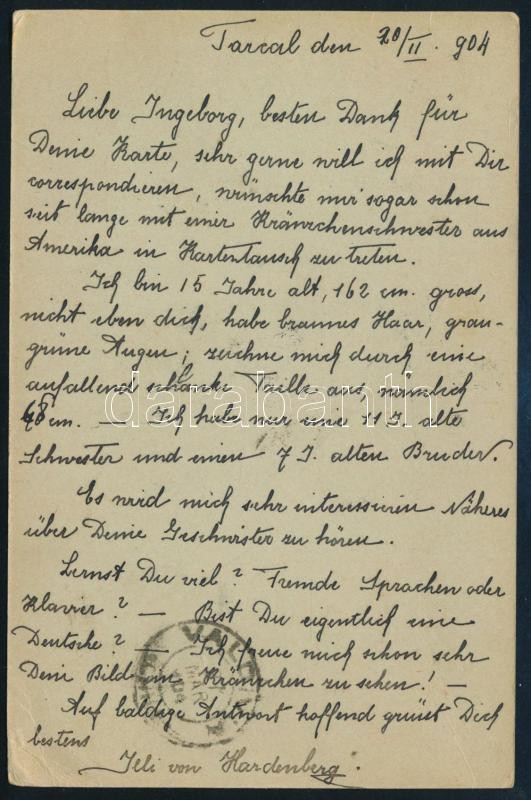 Tarcal den 20/II. 904
Liebe Ingeborg, besten Dank für
Deine Karte, sehr gerne will ich mit Dir
correspondieren, wünschte mir sogar schon
seit lange mit einer Kränzchenschwester aus
Amerika in Kartentausch zu treten.
Ich bin 15 Jahre alt, 162 cm. gross,
nicht eben dick, habe braunes Haar, grau-
grüne Augen; zeichne mich durch eine
auffallend schlanke Taille aus, nämlich
48 cm. — Ich habe nur eine 11 J. alte
Schwester und einen 7 J. alten Bruder.
Es wird mich sehr interessieren Näheres
über Deine Geschwister zu hören.
Lernst Du viel? Fremde Sprachen oder
Klavier? — Bist Du eigentlich eine
Deutsche? — Ich freue mich schon sehr
Dein Bild im Kränzchen zu sehen! —
Auf baldige Antwort hoffend grüßt Dich
bestens
von Hardenberg.
darabanth